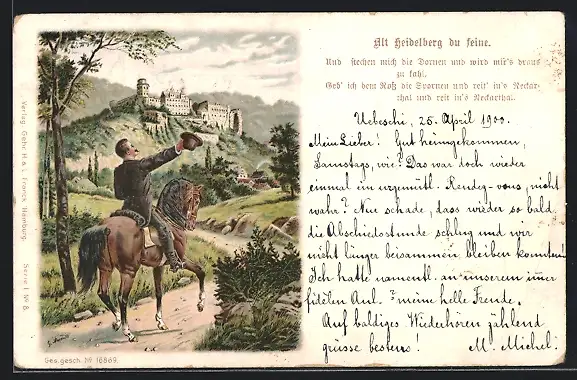 Alt Heidelberg du feine.
Und stechen mich die Dornen und wird mir's draus
zu kahl.
Geb' ich dem Roß die Spornen und reit' in's Neckar-
thal und reit in's Neckarthal.
Uebeschi, 25. April 1900.
Mein Lieber! Gut heimgekommen,
Samstags, wie? Das war doch wieder
einmal ein urgemütl. Rendez-vous, nicht
wahr? Nur schade, dass wieder so bald
die Abschiedstunde schlug und wir
nicht länger beisammen bleiben konnten!
Ich hatte namentl. an unserem imer
fidelen meine helle Freude.
Auf baldiges Wiederhören zählend
grüsse bestens! M. Michel.
Verlag: Gebr. H. & L. Franck, Hamburg. Serie I No 8.
Ges. gesch. No 16869.